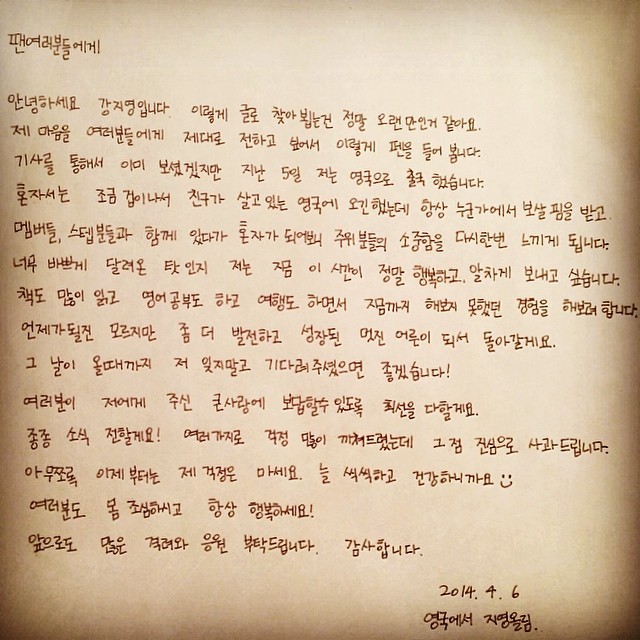 팬여러분들에게
안녕하세요 강지영입니다. 이렇게 글로 찾아 뵙는건 정말 오랜만인거 같아요.
제 마음을 여러분들에게 제대로 전하고 싶어서 이렇게 펜을 들어 봅니다.
기사를 통해서 이미 보셨겠지만 지난 5일 저는 영국으로 출국 했습니다.
혼자서는 조금 겁이나서 친구가 살고있는 영국에 오긴했는데 항상 누군가에서 보살핌을 받고.
멤버들, 스텝분들과 함께 있다가 혼자가 되어보니 주위분들의 소중함을 다시한번 느끼게 됩니다.
너무 바쁘게 달려온 탓인지 저는 지금 이 시간이 정말 행복하고, 알차게 보내고 싶습니다.
책도 많이 읽고 영어공부도 하고 여행도 하면서 지금까지 해보지 못했던 경험을 해보려 합니다.
언제가될진 모르지만 좀 더 발전하고 성장된 멋진 어른이 되서 돌아갈게요.
그 날이 올때까지 저 잊지말고 기다려주셨으면 좋겠습니다!
여러분이 저에게 주신 큰사랑에 보답할수있도록 최선을 다할게요.
종종 소식 전할게요! 여러가지로 걱정 많이 끼쳐드렸는데 그 점 진심으로 사과드립니다.
아무쪼록 이제부터는 제 걱정은 마세요. 늘 씩씩하고 건강하니까요
여러분도 몸 조심하시고 항상 행복하세요!
앞으로도 많은 격려와 응원 부탁드립니다. 감사합니다.
2014. 4. 6
영국에서 지영올림.